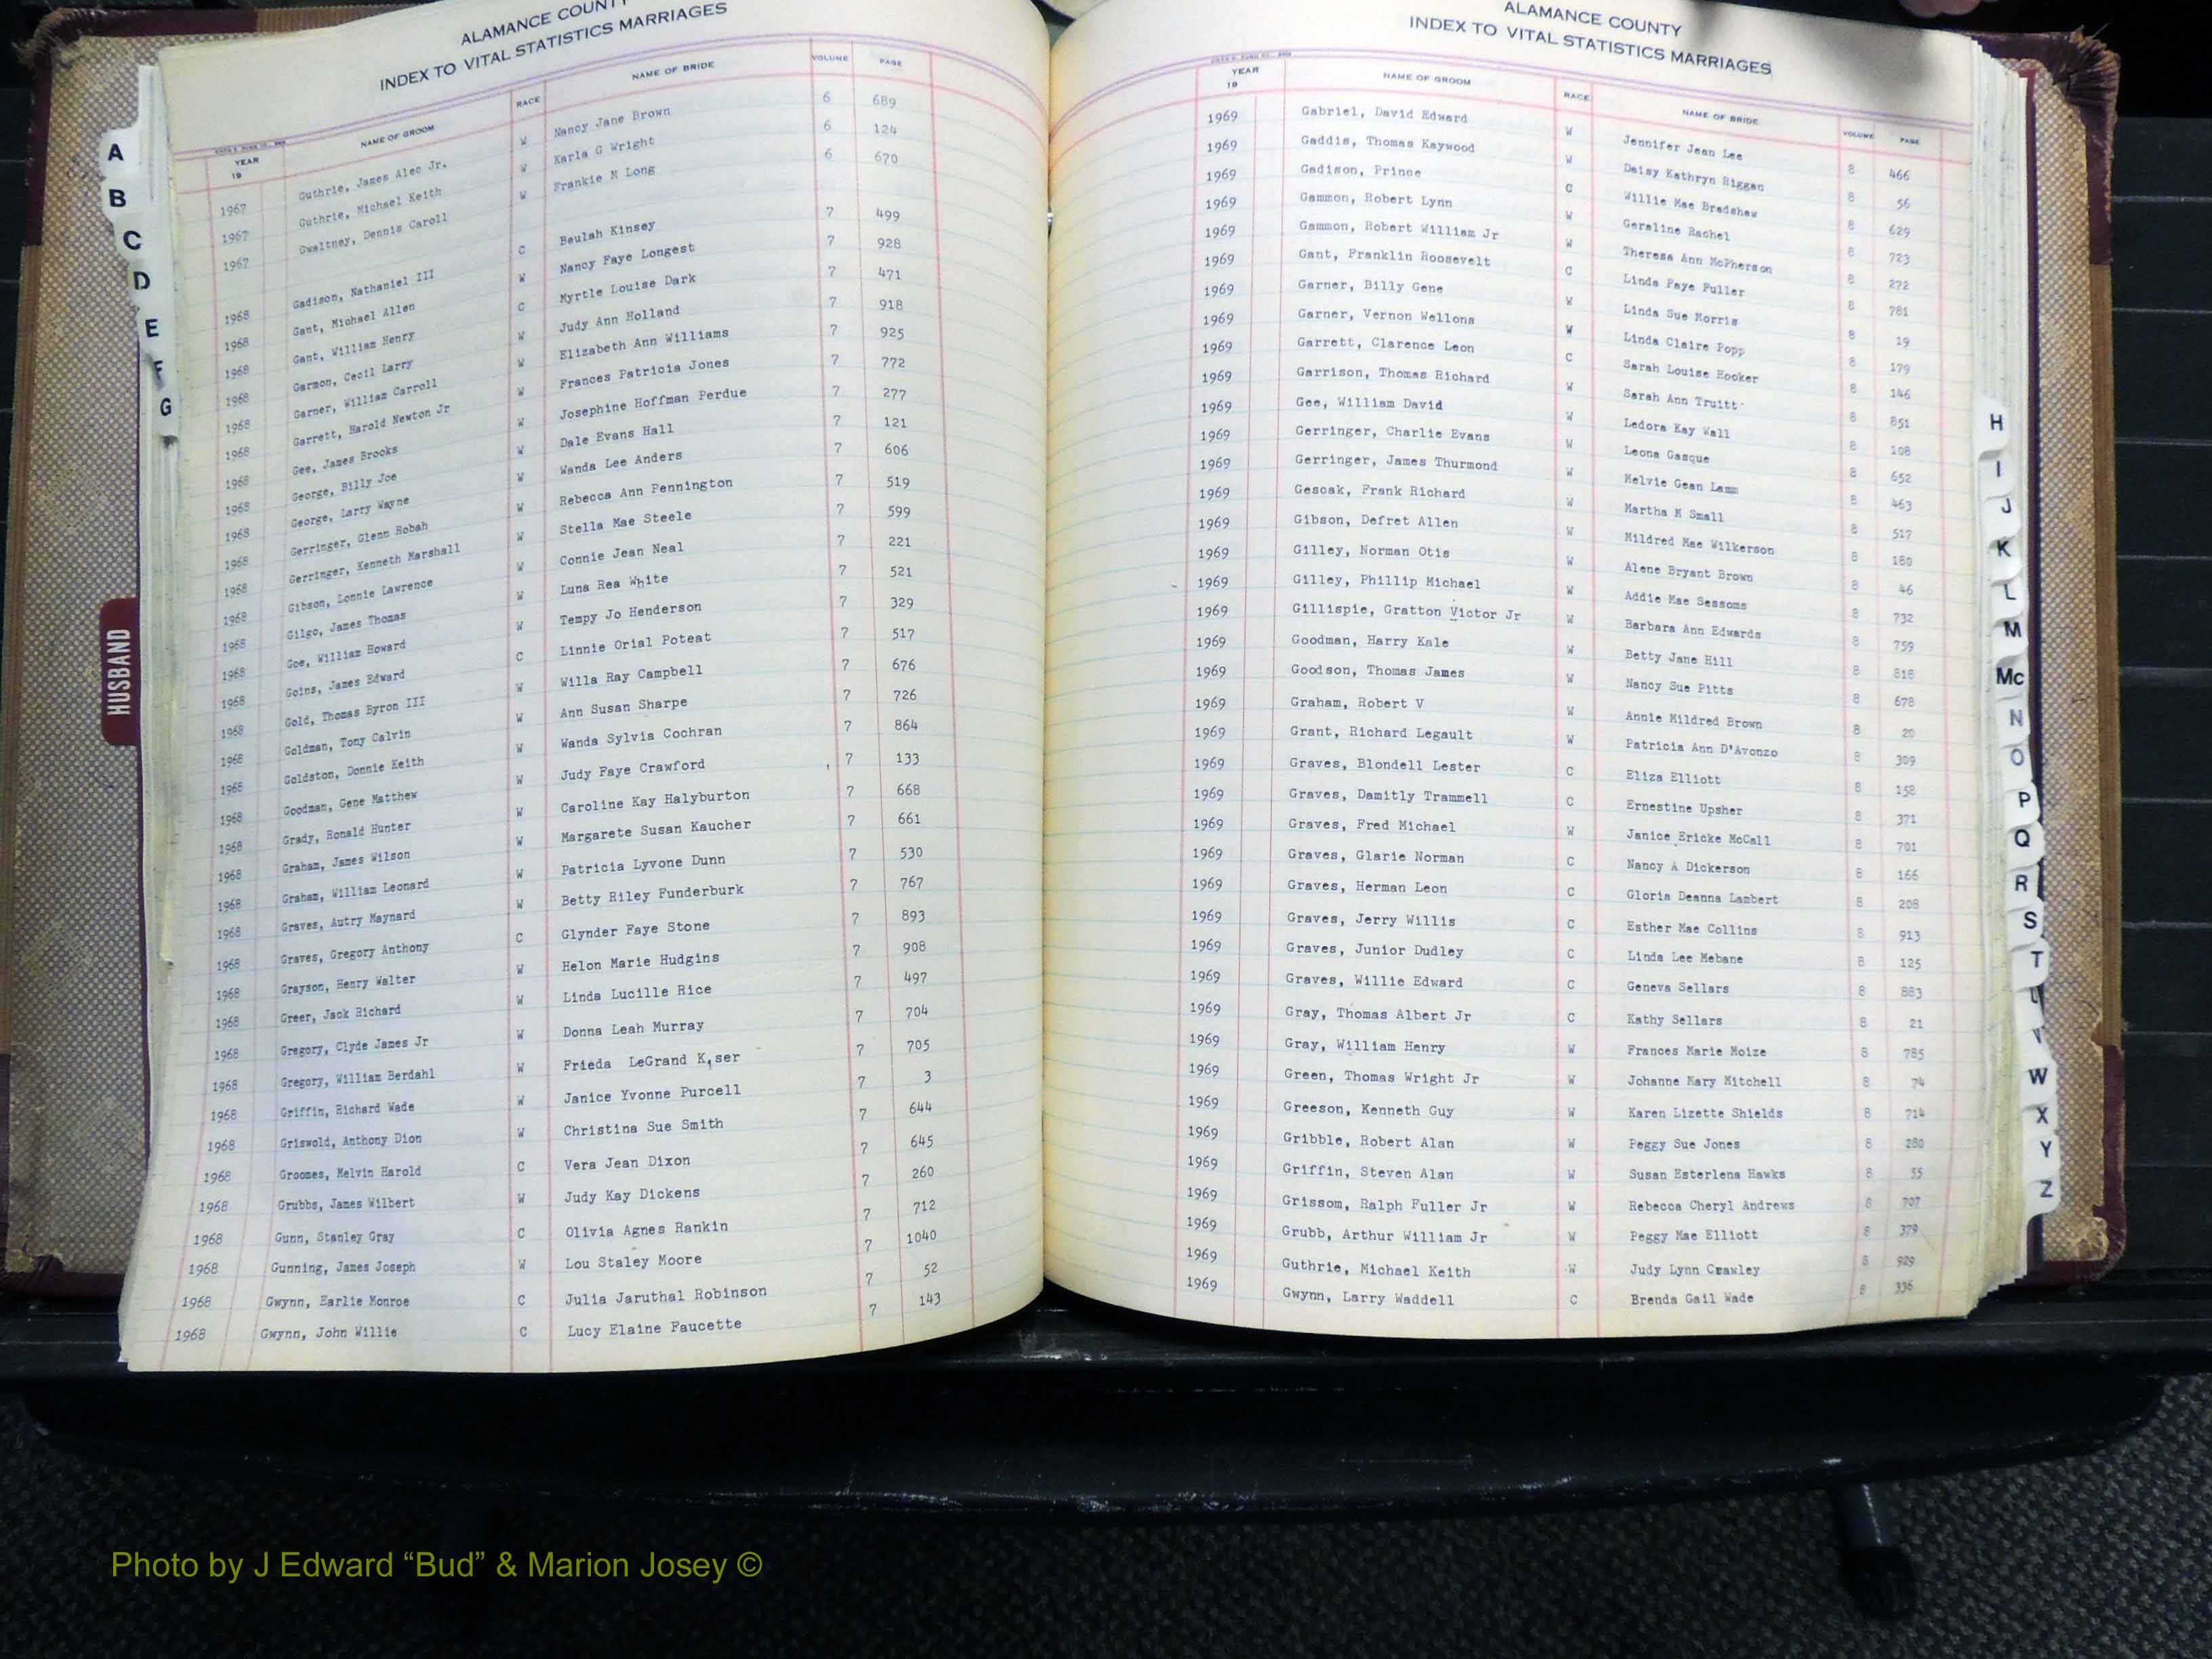 ALAMANCE COUNTY
INDEX TO VITAL STATISTICS MARRIAGES
YEAR 19 NAME OF GROOM RACE NAME OF BRIDE VOLUME PAGE
1967 Guthrie, James Alec Jr. W Nancy Jane Brown 6 689
1967 Guthrie, Michael Keith W Karla G Wright 6 124
1967 Gwaltney, Dennis Caroll W Frankie M Long 6 670
1968 Gadison, Nathaniel III C Beulah Kinsey 7 499
1968 Gant, Michael Allen W Nancy Faye Longest 7 928
1968 Gant, William Henry C Myrtle Louise Dark 7 471
1968 Garmon, Cecil Larry W Judy Ann Holland 7 918
1968 Garner, William Carroll W Elizabeth Ann Williams 7 925
1968 Garrett, Harold Newton Jr W Frances Patricia Jones 7 772
1968 Gee, James Brooks W Josephine Hoffman Perdue 7 277
1968 George, Billy Joe W Dale Evans Hall 7 121
1968 George, Larry Wayne W Wanda Lee Anders 7 606
1968 Gerringer, Glenn Robah W Rebecca Ann Pennington 7 519
1968 Gerringer, Kenneth Marshall W Stella Mae Steele 7 599
1968 Gibson, Lonnie Lawrence W Connie Jean Neal 7 221
1968 Gilgo, James Thomas W Luna Rea White 7 521
1968 Goe, William Howard W Tempy Jo Henderson 7 329
1968 Goins, James Edward C Linnie Orial Poteat 7 517
1968 Gold, Thomas Byron III W Willa Ray Campbell 7 676
1968 Goldman, Tony Calvin W Ann Susan Sharpe 7 726
1968 Goldston, Donnie Keith W Wanda Sylvia Cochran 7 864
1968 Goodman, Gene Matthew W Judy Faye Crawford 7 133
1968 Grady, Ronald Hunter W Caroline Kay Halyburton 7 668
1968 Graham, James Wilson W Margarete Susan Kaucher 7 661
1968 Graham, William Leonard W Patricia Lyvone Dunn 7 530
1968 Graves, Autry Maynard W Betty Riley Funderburk 7 767
1968 Graves, Gregory Anthony C Glynder Faye Stone 7 893
1968 Grayson, Henry Walter W Helon Marie Hudgins 7 908
1968 Greer, Jack Richard W Linda Lucille Rice 7 497
1968 Gregory, Clyde James Jr W Donna Leah Murray 7 704
1968 Gregory, William Berdahl W Frieda LeGrand K,ser 7 705
1968 Griffin, Richard Wade W Janice Yvonne Purcell 7 3
1968 Griswold, Anthony Dion W Christina Sue Smith 7 644
1968 Groomes, Melvin Harold C Vera Jean Dixon 7 645
1968 Grubbs, James Wilbert W Judy Kay Dickens 7 260
1968 Gunn, Stanley Gray C Olivia Agnes Rankin 7 712
1968 Gunning, James Joseph W Lou Staley Moore 7 1040
1968 Gwynn, Earlie Monroe C Julia Jaruthal Robinson 7 52
1968 Gwynn, John Willie C Lucy Elaine Faucette 7 143
ALAMANCE COUNTY
INDEX TO VITAL STATISTICS MARRIAGES
YEAR 19 NAME OF GROOM RACE NAME OF BRIDE VOLUME PAGE
1969 Gabriel, David Edward W Jennifer Jean Lee 8 466
1969 Gaddis, Thomas Kaywood W Daisy Kathryn Riggan 8 56
1969 Gadison, Prince C Willie Mae Bradshaw 8 629
1969 Gammon, Robert Lynn W Geraline Rachel 8 723
1969 Gammon, Robert William Jr W Theresa Ann McPherson 8 272
1969 Gant, Franklin Roosevelt C Linda Faye Fuller 8 781
1969 Garner, Billy Gene W Linda Sue Morris 8 19
1969 Garner, Vernon Wellons W Linda Claire Popp 8 179
1969 Garrett, Clarence Leon C Sarah Louise Hooker 8 146
1969 Garrison, Thomas Richard W Sarah Ann Truitt 8 851
1969 Gee, William David W Ledora Kay Wall 8 108
1969 Gerringer, Charlie Evans W Leona Gasque 8 652
1969 Gerringer, James Thurmond W Melvie Gean Lamm 8 463
1969 Gescak, Frank Richard W Martha M Small 8 517
1969 Gibson, Defret Allen W Mildred Mae Wilkerson 8 180
1969 Gilley, Norman Otis W Alene Bryant Brown 8 46
1969 Gilley, Phillip Michael W Addie Mae Sessoms 8 732
1969 Gillispie, Gratton Victor Jr W Barbara Ann Edwards 8 759
1969 Goodman, Harry Kale W Betty Jane Hill 8 818
1969 Goodson, Thomas James W Nancy Sue Pitts 8 678
1969 Graham, Robert V W Annie Mildred Brown 8 20
1969 Grant, Richard Legault W Patricia Ann D'Avonzo 8 309
1969 Graves, Blondell Lester C Eliza Elliott 8 158
1969 Graves, Damitly Trammell C Ernestine Upsher 8 371
1969 Graves, Fred Michael W Janice Ericke McCall 8 701
1969 Graves, Glarie Norman C Nancy A Dickerson 8 166
1969 Graves, Herman Leon C Gloria Deanna Lambert 8 208
1969 Graves, Jerry Willis C Esther Mae Collins 8 913
1969 Graves, Junior Dudley C Linda Lee Mebane 8 125
1969 Graves, Willie Edward C Geneva Sellars 8 883
1969 Gray, Thomas Albert Jr C Kathy Sellars 8 21
1969 Gray, William Henry W Frances Marie Moize 8 785
1969 Green, Thomas Wright Jr W Johanne Mary Mitchell 8 74
1969 Greeson, Kenneth Guy W Karen Lizette Shields 8 714
1969 Gribble, Robert Alan W Peggy Sue Jones 8 280
1969 Griffin, Steven Alan W Susan Esterlena Hawks 8 55
1969 Grissom, Ralph Fuller Jr W Rebecca Cheryl Andrews 8 707
1969 Grubb, Arthur William Jr W Peggy Mae Elliott 8 379
1969 Guthrie, Michael Keith W Judy Lynn Crawley 8 929
1969 Gwynn, Larry Waddell C Brenda Gail Wade 8 336
A
B
C
D
E
F
G
HUSBAND
H
I
J
K
L
M
Mc
N
O
P
Q
R
S
T
U
V
W
X
Y
Z
Photo by J Edward “Bud” & Marion Josey ©